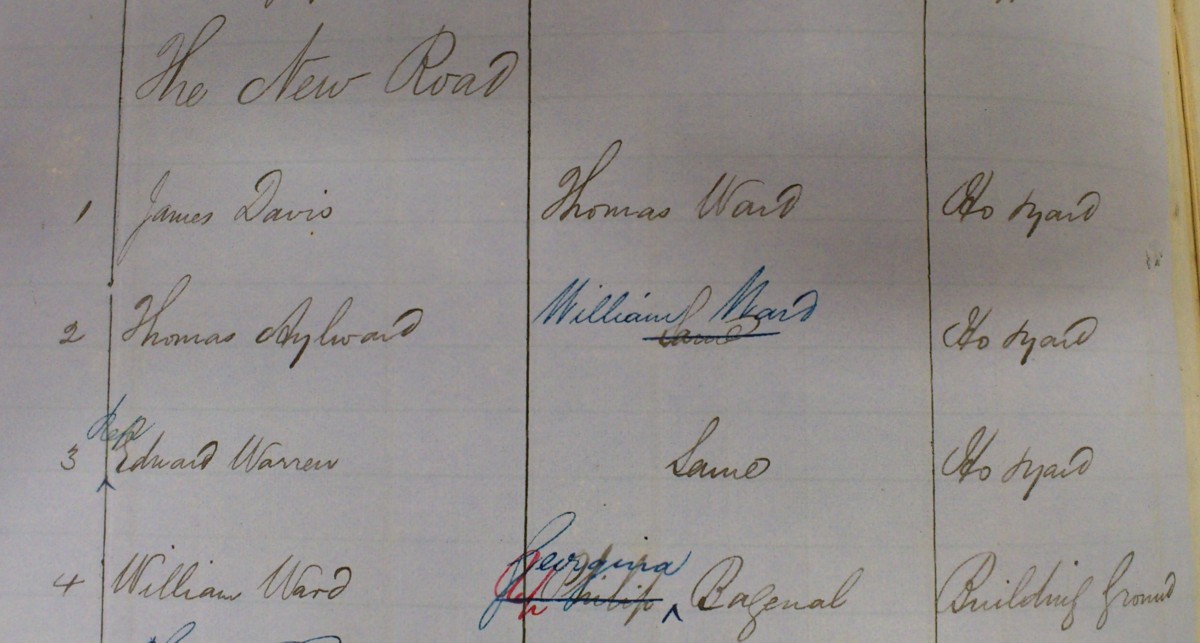 The New Road
1 James Davis Thomas Ward Ho & yard
2 Thomas Aylward William Ward Same Ho & yard
Rep
3 Edward Warren Same Ho & yard
Georgina
4 William Ward Philip ^ Bagenal Building ground